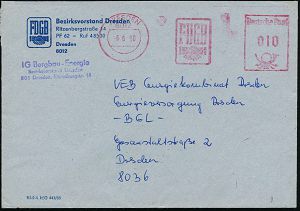 FDGB
Bezirksvorstand Dresden
Ritzenbergstraße
PF 62 - Ruf 48500
Dresden
8012
IG Bergbau-Energie
Bezirksvorstand Dresden
DRESDEN
FDGB
Deutsche Post
010
VEB Energiekombinat Dresden
Energieversorgung Dresden
- BGL -
2
Dresden
8036